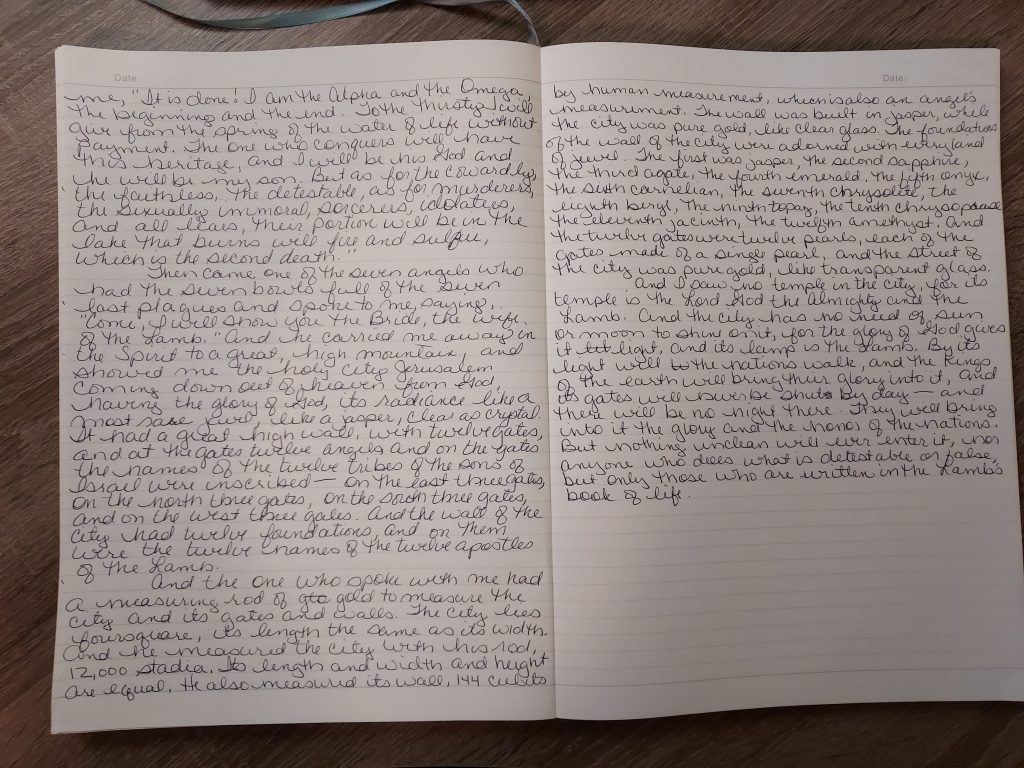 Date:
me, "It is done! I am the Alpha and the Omega,
the beginning and the end. To the thirsty I will
give from the spring of the water of life without
payment. The one who conquers will have
this heritage, and I will be his God and
he will be my son. But as for the cowardly,
the faithless, the detestable, as for murderers,
the sexually immoral, sorcerers, idolaters,
and all liars, their portion will be in the
lake that burns will fire and sulfur,
which is the second death."
Then came one of the seven angels who
had the seven bowls full of the seven
last plagues and spoke to me, saying,
"Come, I will show you the Bride, the wife
of the Lamb." And he carried me away in
the Spirit to a great, high mountain, and
showed me the holy city Jerusalem
coming down out of heaven from God,
having the glory of God, its radiance like a
most rare jewel, like a jasper, clear as crystal.
It had a great high wall, with twelve gates,
and at the gates twelve angels and on the gates
the names of the twelve tribes of the sons of
Israel were inscribed — on the east three gates,
on the north three gates, on the south three gates,
and on the west three gates. And the wall of the
city had twelve foundations, and on them
were the twelve names of the twelve apostles
of the Lamb.
And the one who spoke with me had
a measuring rod of gold to measure the
city and its gates and walls. The city lies
foursquare, its length the same as its width.
And he measured the city with his rod,
12,000 stadia. Its length and width and height
are equal. He also measured its wall, 144 cubits
Date:
by human measurement, which is also an angel's
measurement. The wall was built in jasper, while
the city was pure gold, like clear glass. The foundations
of the wall of the city were adorned with every kind
of jewel. The first was jasper, the second sapphire,
the third agate, the fourth emerald, the fifth onyx,
the sixth carnelian, the seventh chrysolite, the
eighth beryl, the ninth topaz, the tenth chrysoprase
the eleventh jacinth, the twelfth amethyst. And
the twelve gates were twelve pearls, each of the
gates made of a single pearl, and the street of
the city was pure gold, like transparent glass.
And I saw no temple in the city, for its
temple is the Lord God the Almighty and the
Lamb. And the city has no need of sun
or moon to shine on it, for the glory of God gives
it light, and its lamp is the Lamb. By its
light will the nations walk, and the kings
of the earth will bring their glory into it, and
its gates will never be shut by day — and
there will be no night there. They will bring
into it the glory and the honor of the nations.
But nothing unclean will ever enter it, nor
anyone who does what is detestable or false,
but only those who are written in the Lamb's
book of life.